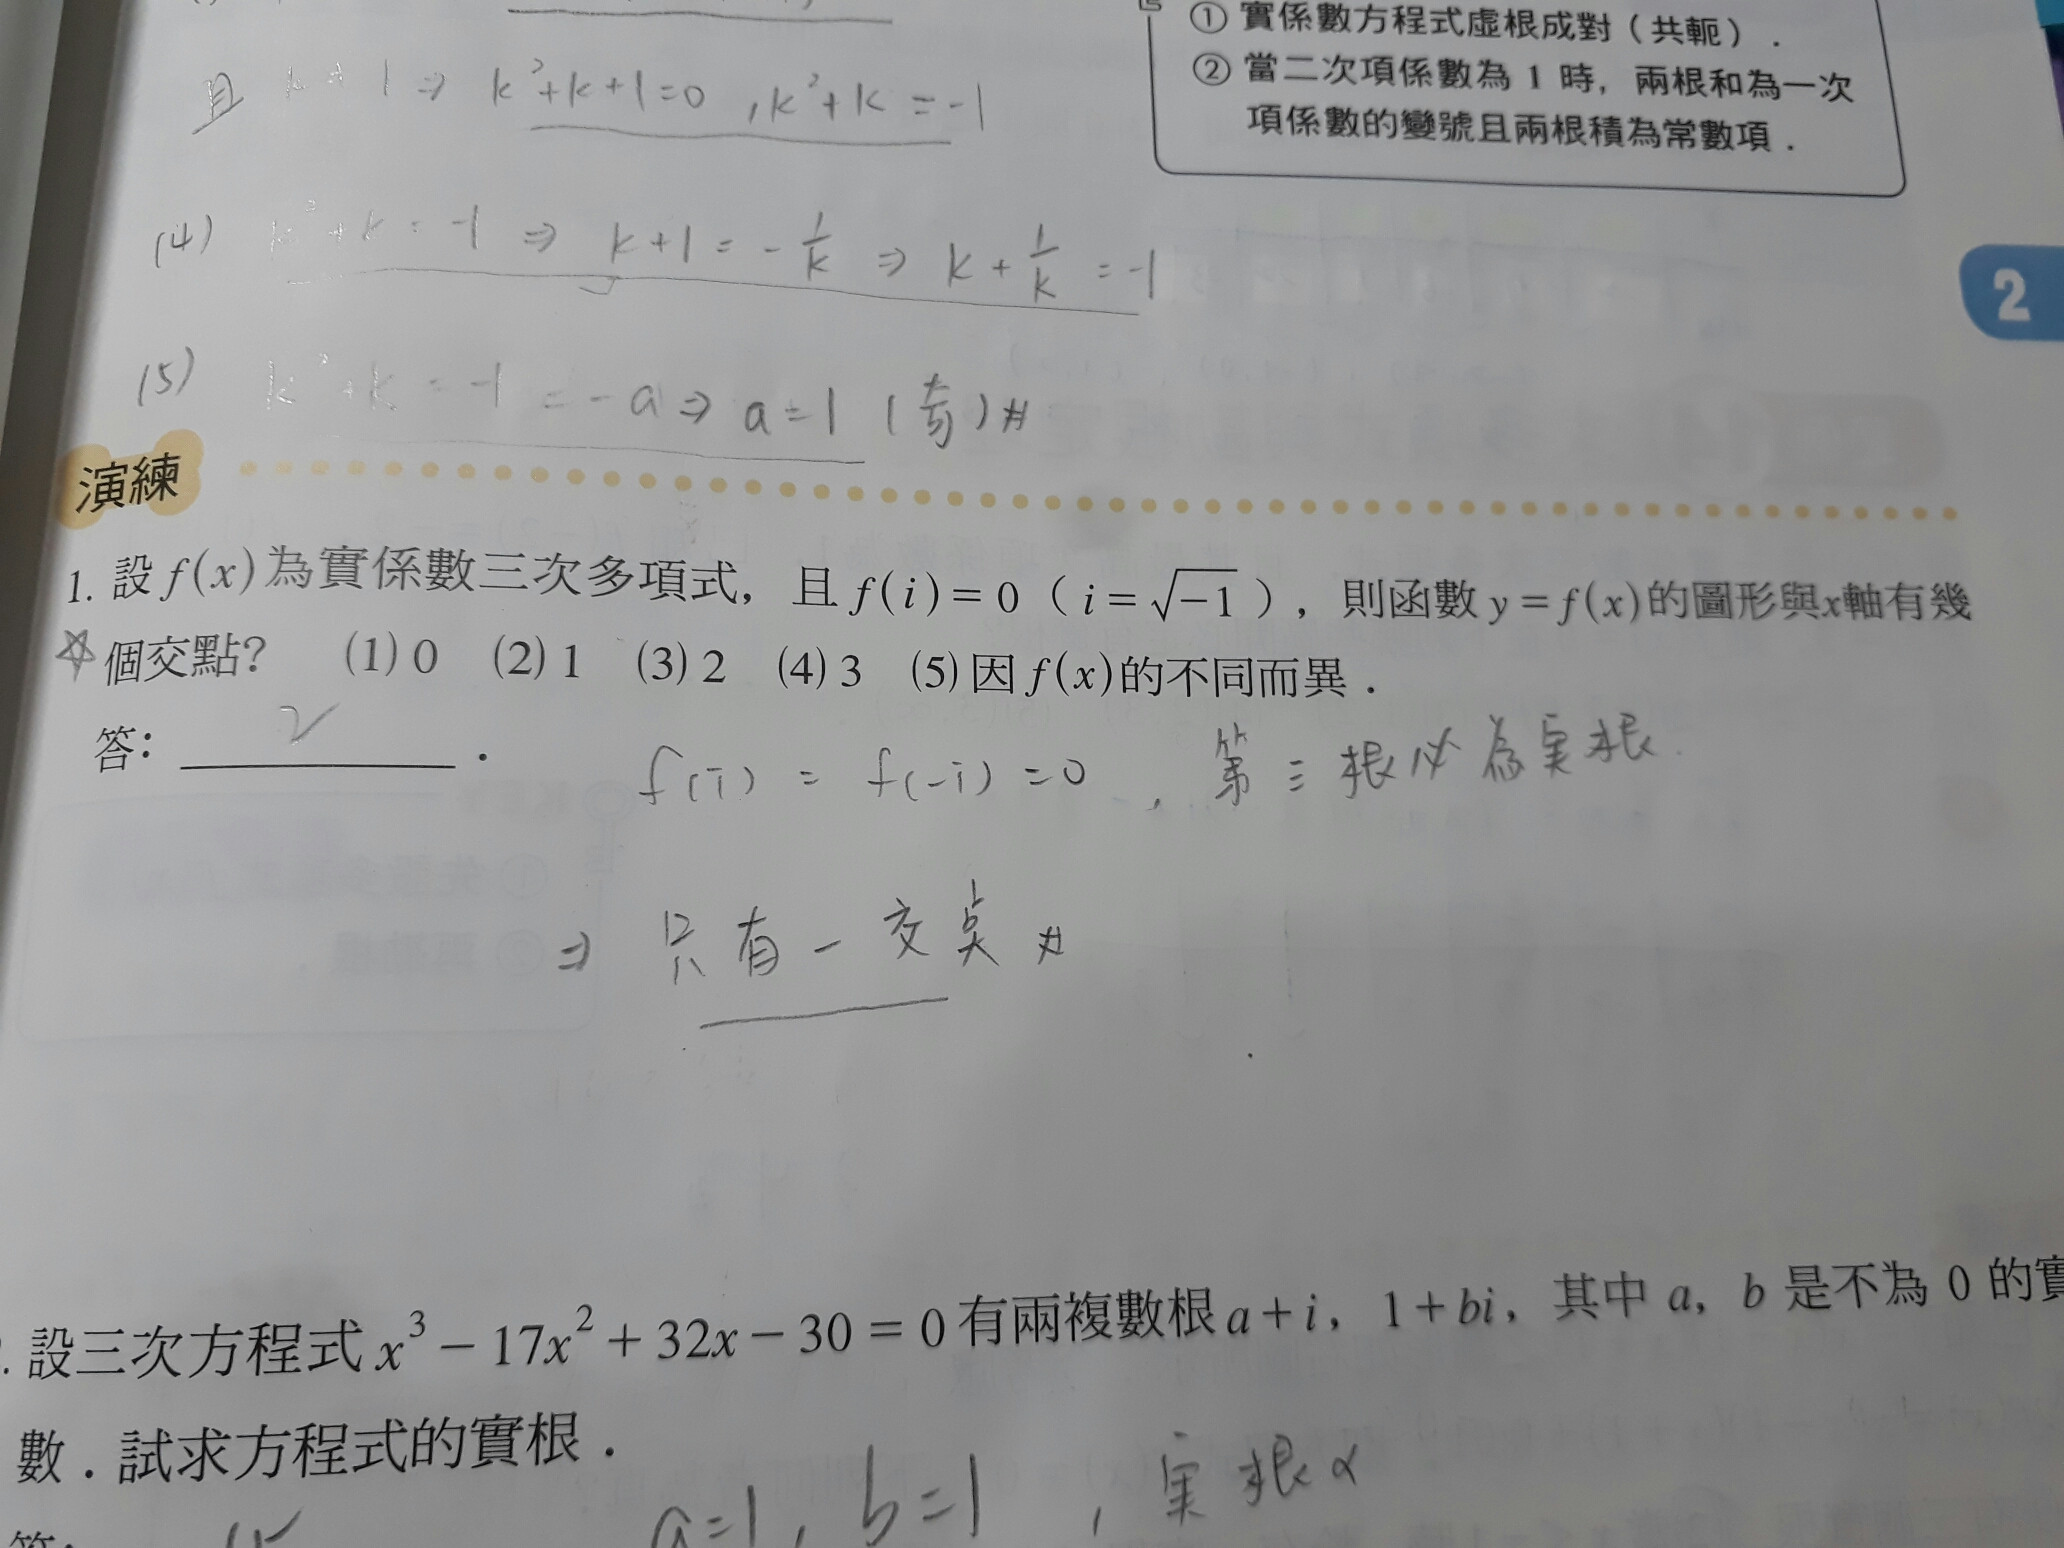 ① 實係數方程式虛根成對（共軛）．
② 當二次項係數為 1 時，兩根和為一次
項係數的變號且兩根積為常數項．
且 k≠1 ⇒ k²+k+1=0 , k²+k=-1
(4) k²+k=-1 ⇒ k+1=-1/k ⇒ k+1/k=-1
(5) k²+k=-1=-a ⇒ a=1 (奇)#
2
演練
1. 設 f(x) 為實係數三次多項式，且 f(i)=0（i=√-1），則函數 y=f(x) 的圖形與x軸有幾
☆ 個交點？ (1) 0 (2) 1 (3) 2 (4) 3 (5) 因 f(x) 的不同而異．
答： 2 ．
f(i) = f(-i) = 0 , 第三根必為実根
⇒ 只有一交點 #
. 設三次方程式 x³-17x²+32x-30=0 有兩複數根 a+i，1+bi，其中 a，b 是不為 0 的實
數．試求方程式的實根．
答： 15
a=1, b=1 , 実根α